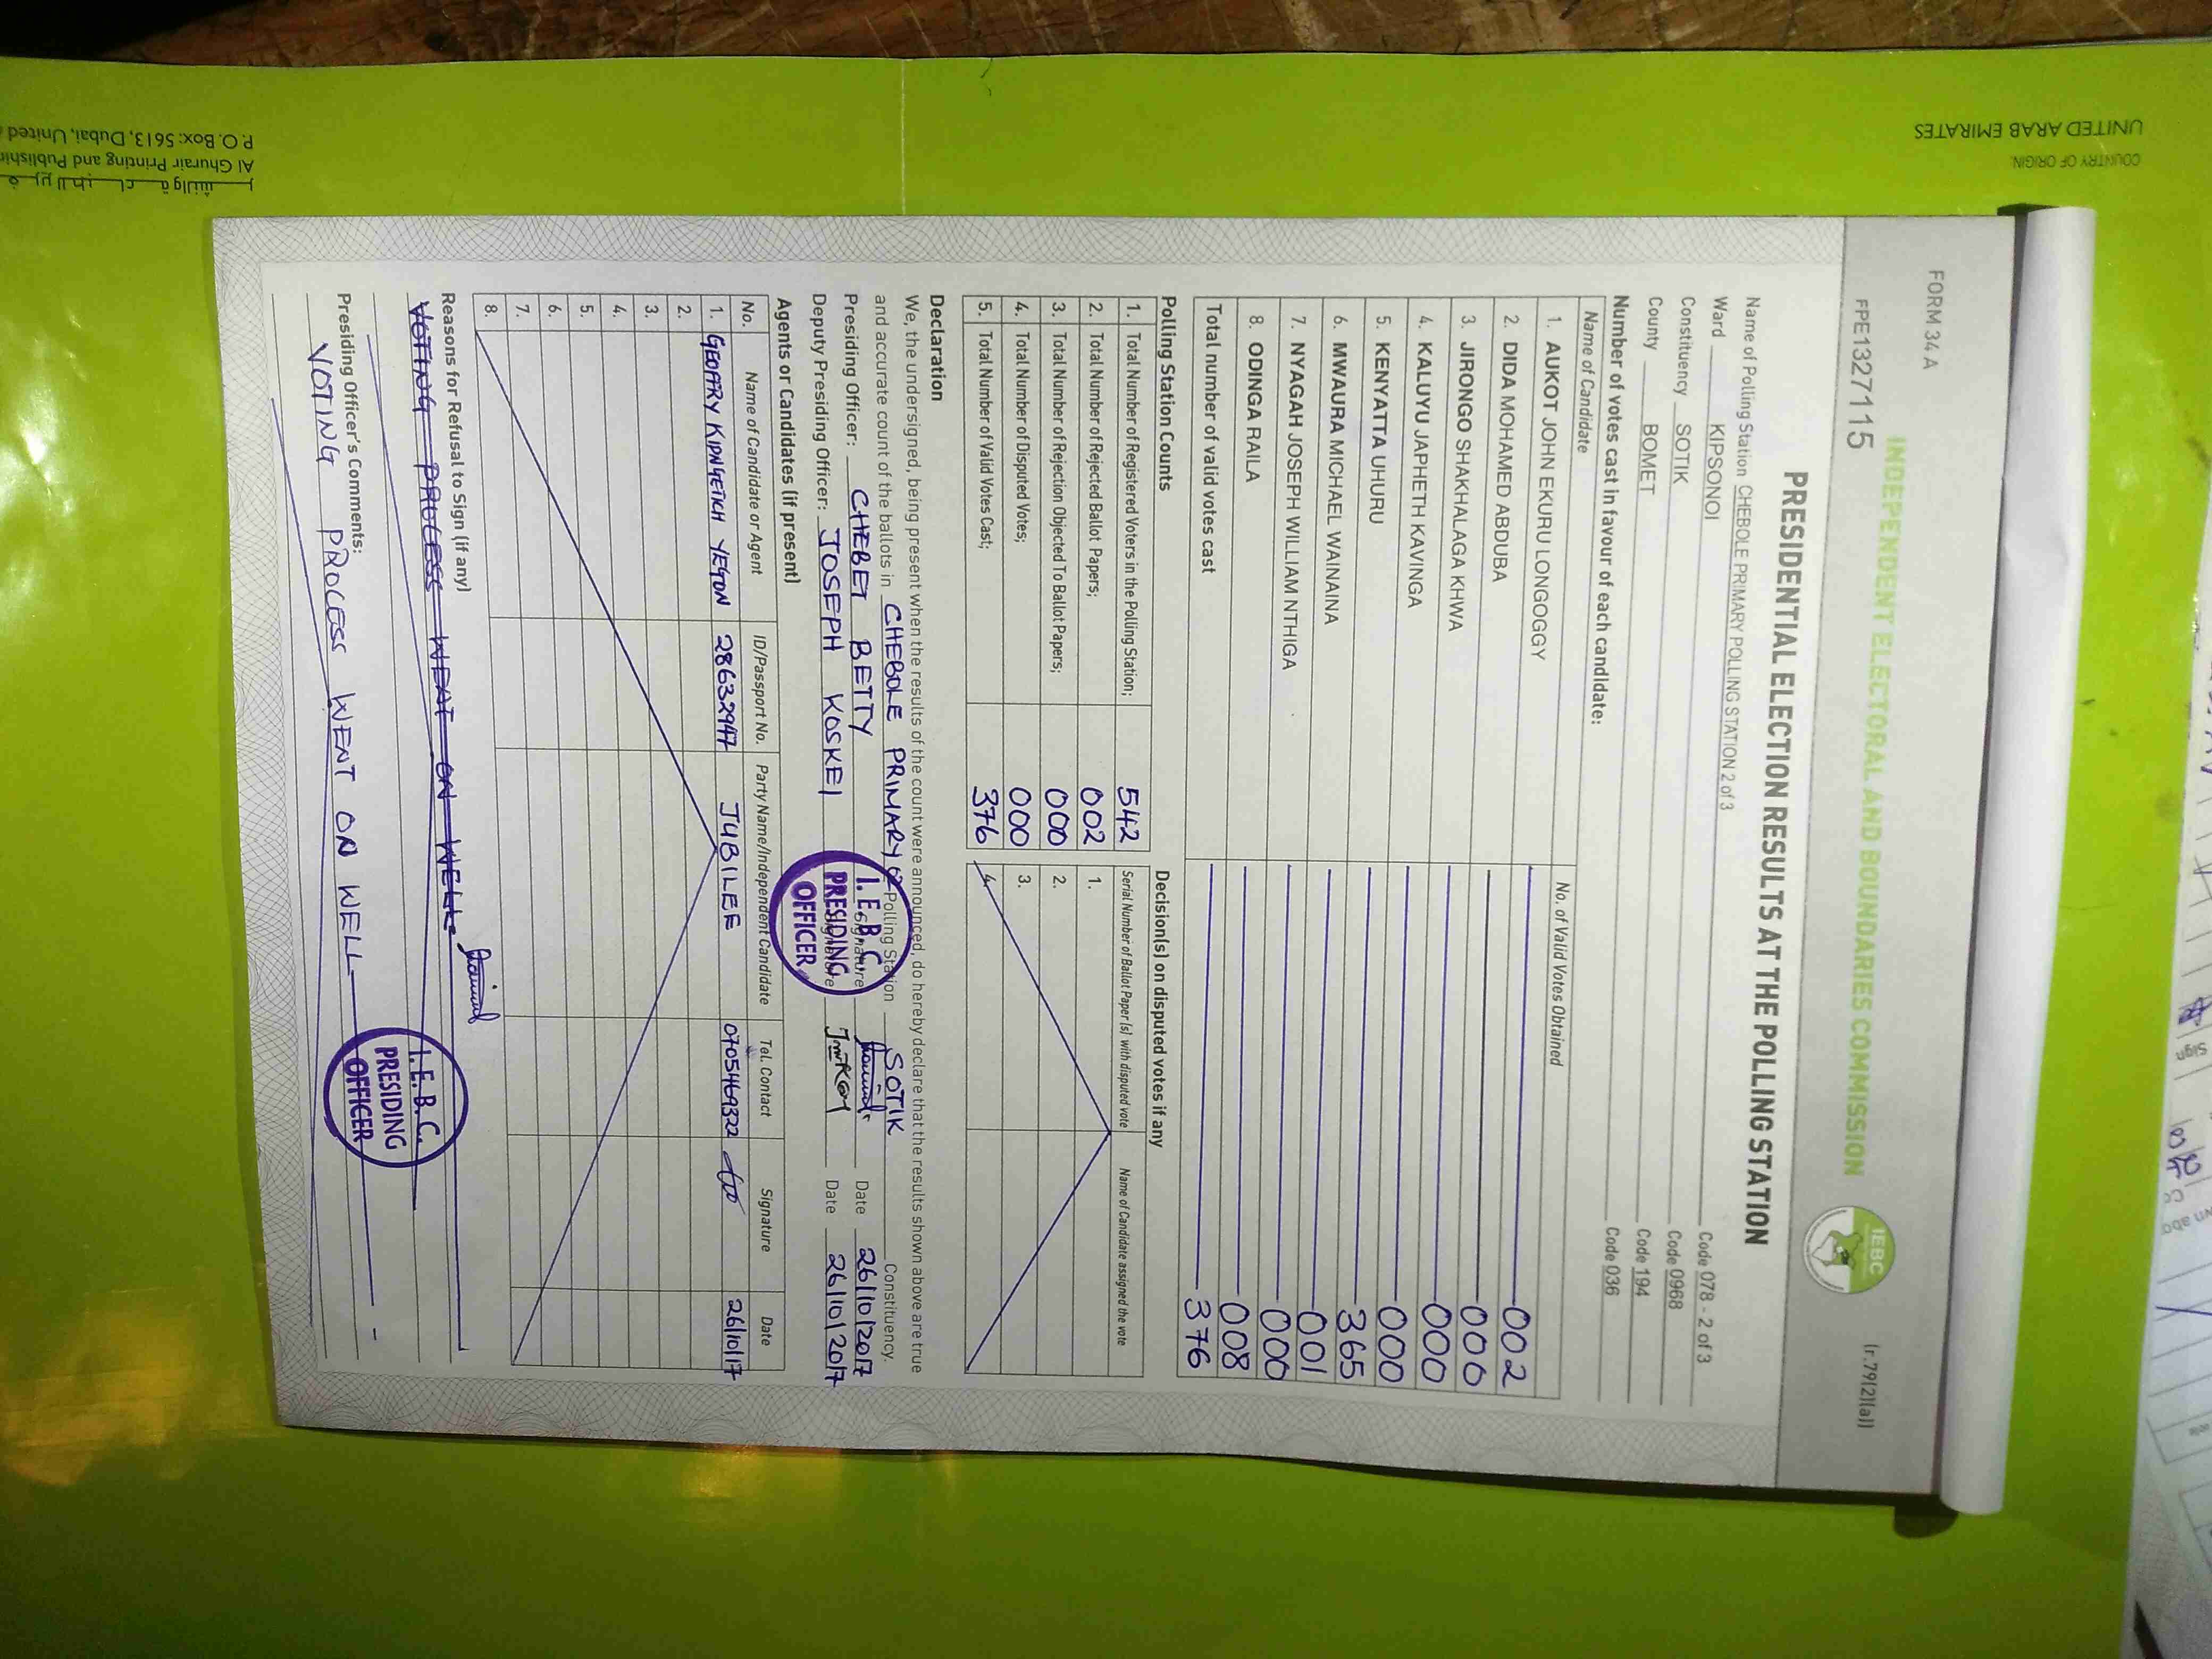 FORM 34 A
(r.79(2)(a))
INDEPENDENT ELECTORAL AND BOUNDARIES COMMISSION
IEBC
FPE1327115
PRESIDENTIAL ELECTION RESULTS AT THE POLLING STATION
Name of Polling Station CHEBOLE PRIMARY POLLING STATION 2 of 3 Code 078 - 2 of 3
Ward KIPSONOI Code 0968
Constituency SOTIK Code 194
County BOMET Code 036
Number of votes cast in favour of each candidate:
Name of Candidate No. of Valid Votes Obtained
1. AUKOT JOHN EKURU LONGOGGY 002
2. DIDA MOHAMED ABDUBA 000
3. JIRONGO SHAKHALAGA KHWA 000
4. KALUYU JAPHETH KAVINGA 000
5. KENYATTA UHURU 365
6. MWAURA MICHAEL WAINAINA 001
7. NYAGAH JOSEPH WILLIAM NTHIGA 000
8. ODINGA RAILA 008
Total number of valid votes cast 376
Polling Station Counts Decision(s) on disputed votes if any
1. Total Number of Registered Voters in the Polling Station; 542 Serial Number of Ballot Paper (s) with disputed vote Name of Candidate assigned the vote
2. Total Number of Rejected Ballot Papers; 002 1.
3. Total Number of Rejection Objected To Ballot Papers; 000 2.
4. Total Number of Disputed Votes; 000 3.
5. Total Number of Valid Votes Cast; 376 4.
Declaration
We, the undersigned, being present when the results of the count were announced, do hereby declare that the results shown above are true
and accurate count of the ballots in CHEBOLE PRIMARY Polling Station SOTIK Constituency.
Presiding Officer: CHEBET BETTY Signature Date 26/10/2017
Deputy Presiding Officer: JOSEPH KOSKEI Signature Date 26/10/2017
I.E.B.C
PRESIDING
OFFICER
Agents or Candidates (if present)
No. Name of Candidate or Agent ID/Passport No. Party Name/Independent Candidate Tel. Contact Signature Date
1. GEOFFRY KIPNGETICH YEGON 28632947 JUBILEE 0705469322 26/10/17
2.
3.
4.
5.
6.
7.
8.
Reasons for Refusal to Sign (if any)
VOTING PROCESS WENT ON WELL
I.E.B.C.
PRESIDING
OFFICER
Presiding Officer's Comments:
VOTING PROCESS WENT ON WELL
COUNTRY OF ORIGIN:
UNITED ARAB EMIRATES
Al Ghurair Printing and Publishin
P.O. Box: 5613, Dubai, United
Sign